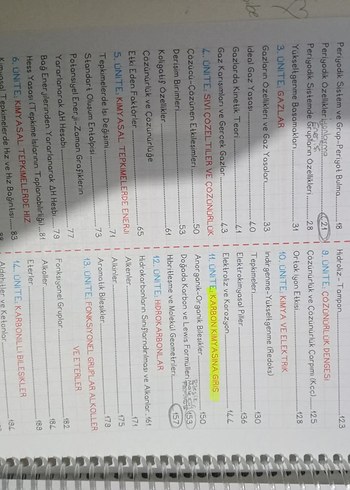 Periyodik Sistem ve Grup-Periyot Bulma 18
Periyodik Özellikler 21
Periyodik Sistemde Grupların Özellikleri 28
Yükseltgenme Basamakları 31
3. ÜNİTE: GAZLAR
Gazların Özellikleri ve Gaz Yasaları 33
İdeal Gaz Yasası 40
Gazlarda Kinetik Teori 41
Gaz Karışımları ve Gerçek Gazlar 43
4. ÜNİTE: SIVI ÇÖZELTİLER VE ÇÖZÜNÜRLÜK
Çözücü-Çözünen Etkileşimleri 50
Derişim Birimleri 53
Koligatif Özellikler 61
Çözünürlük ve Çözünürlüğe
Etki Eden Faktörler 65
5. ÜNİTE: KİMYASAL TEPKİMELERDE ENERJİ
Tepkimelerde Isı Değişimi 71
Standart Oluşum Entalpisi 73
Potansiyel Enerji-Zaman Grafiklerin
Yararlanarak ΔH Hesabı 77
Bağ Enerjilerinden Yararlanarak ΔH Hesabı 79
Hess Yasası (Tepkime Isılarının Toplanabilirliği) 81
6. ÜNİTE: KİMYASAL TEPKİMELERDE HIZ
Kimyasal Tepkimelerde Hız ve Hız Bağıntısı 83
Hidroliz - Tampon 123
9. ÜNİTE: ÇÖZÜNÜRLÜK DENGESİ
Çözünürlük ve Çözünürlük Çarpımı (Kçç) 125
Ortak İyon Etkisi 128
10. ÜNİTE: KİMYA VE ELEKTRİK
İndirgenme-Yükseltgenme (Redoks)
Tepkimeleri 130
Elektrokimyasal Piller 136
Elektroliz ve Korozyon 144
11. ÜNİTE: KARBON KİMYASINA GİRİŞ
Anorganik-Organik Bileşikler 150
Doğada Karbon ve Lewis Formülleri 153
Hibritleşme ve Molekül Geometrileri 157
12. ÜNİTE: HİDROKARBONLAR
Hidrokarbonların Sınıflandırılması ve Alkanlar 161
Alkenler 171
Alkinler 175
Aromatik Bileşikler 178
13. ÜNİTE: FONKSİYONEL GRUPLAR, ALKOLLER
VE ETERLER
Fonksiyonel Gruplar 182
Alkoller 184
Eterler 189
14. ÜNİTE: KARBONİLLİ BİLEŞİKLER
Aldehitler ve Ketonlar 194